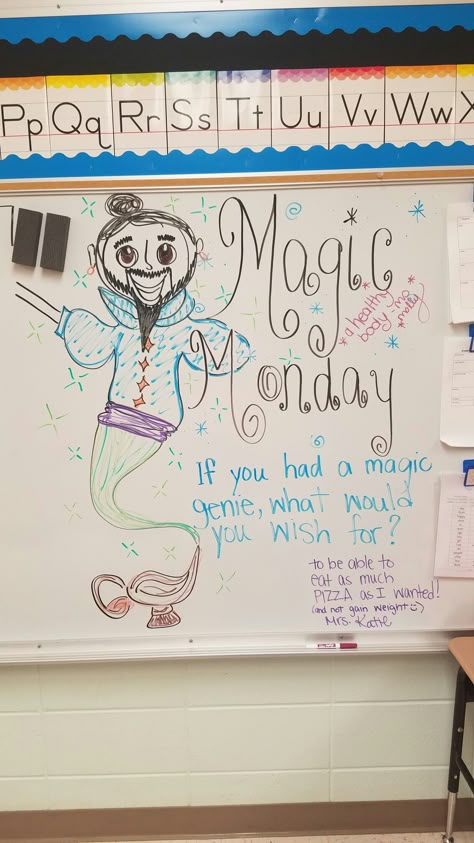 Pp Qq Rr Ss Tt Uu Vv Ww X
Magic
Monday
a healthy
body
If you had a magic
genie, what would
you wish for?
to be able to
eat as much
PIZZA as I wanted!
(and not gain weight :))
Mrs. Katie